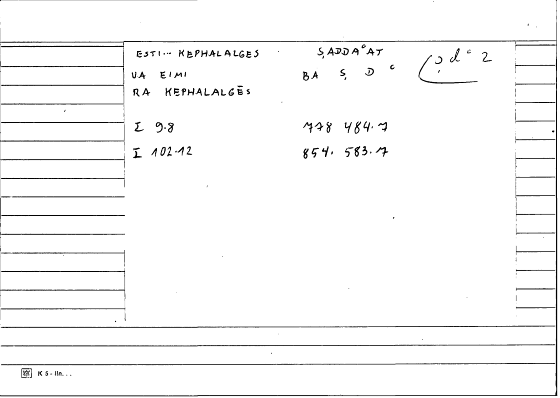 ESTI... KEPHALALGES ṢADDAᶜAT
UA EIMI BA Ṣ D ᶜ
RA KEPHALALGĒS
I 9.8 778 484.7
I 102.12 854. 583.7
K 5 - lln...